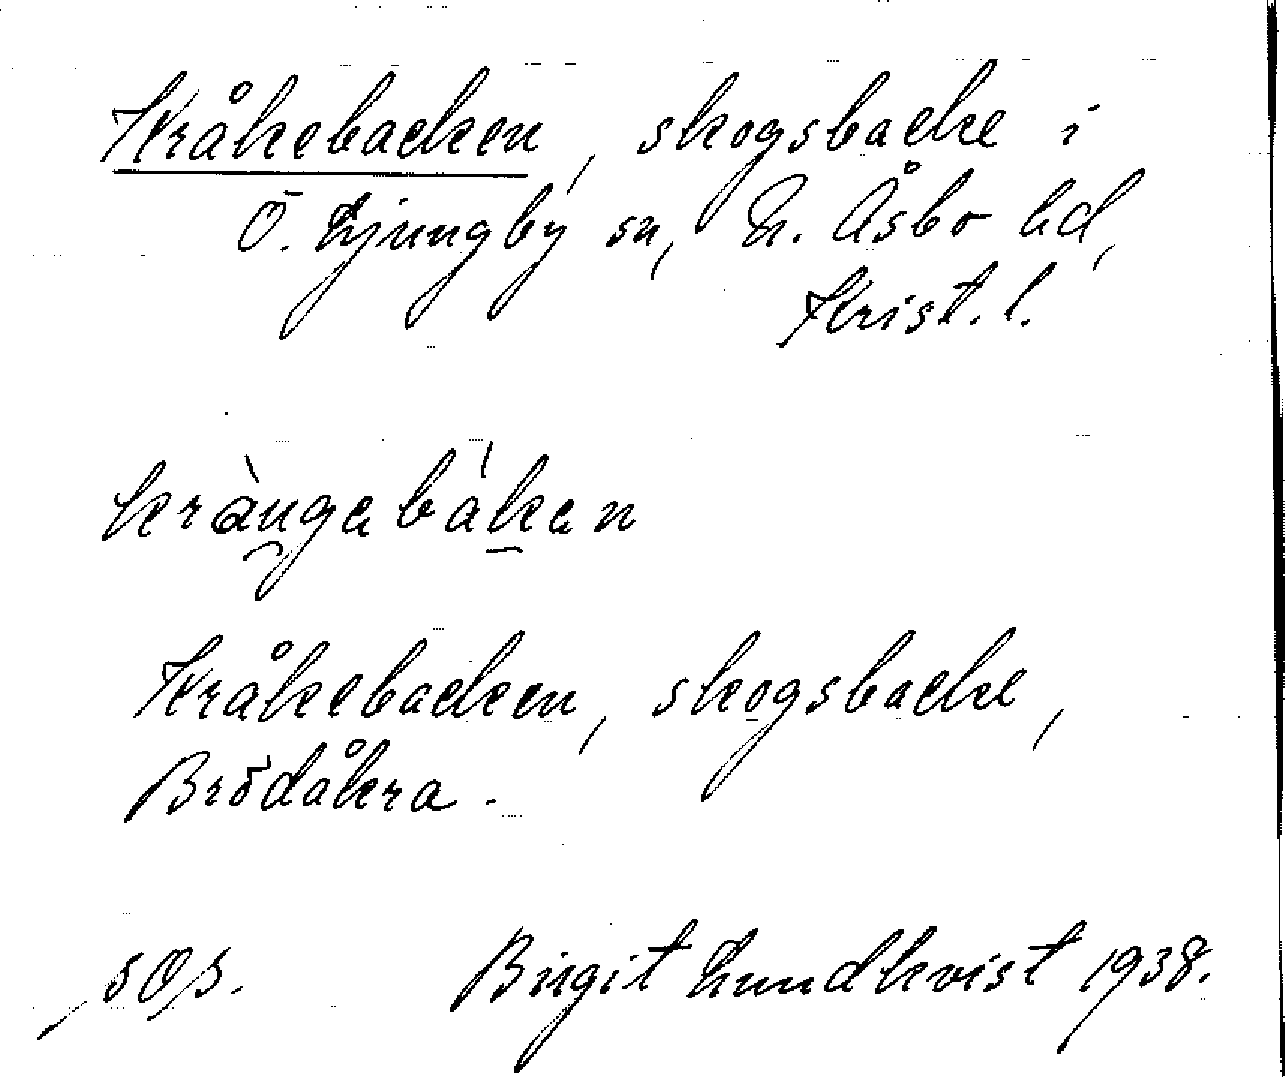 Kråkebacken, skogsbacke i
Ö. Ljungby sn, N. Åsbo hd,
Krist. l.
kràngabákan
Kråkebacken, skogsbacke,
Brödåkra.
Birgit Lundkvist 1938.